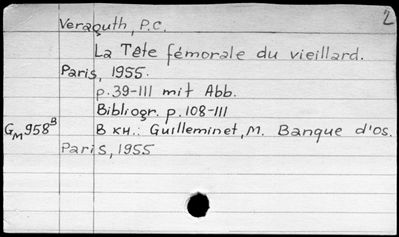 2
Veraguth, P.C.
La Tête fémorale du vieillard.
Paris, 1955.
p. 39-111 mit Abb.
Bibliogr. p. 108-111
GM 958 B В кн.: Guilleminet, M. Banque d'os.
Paris, 1955